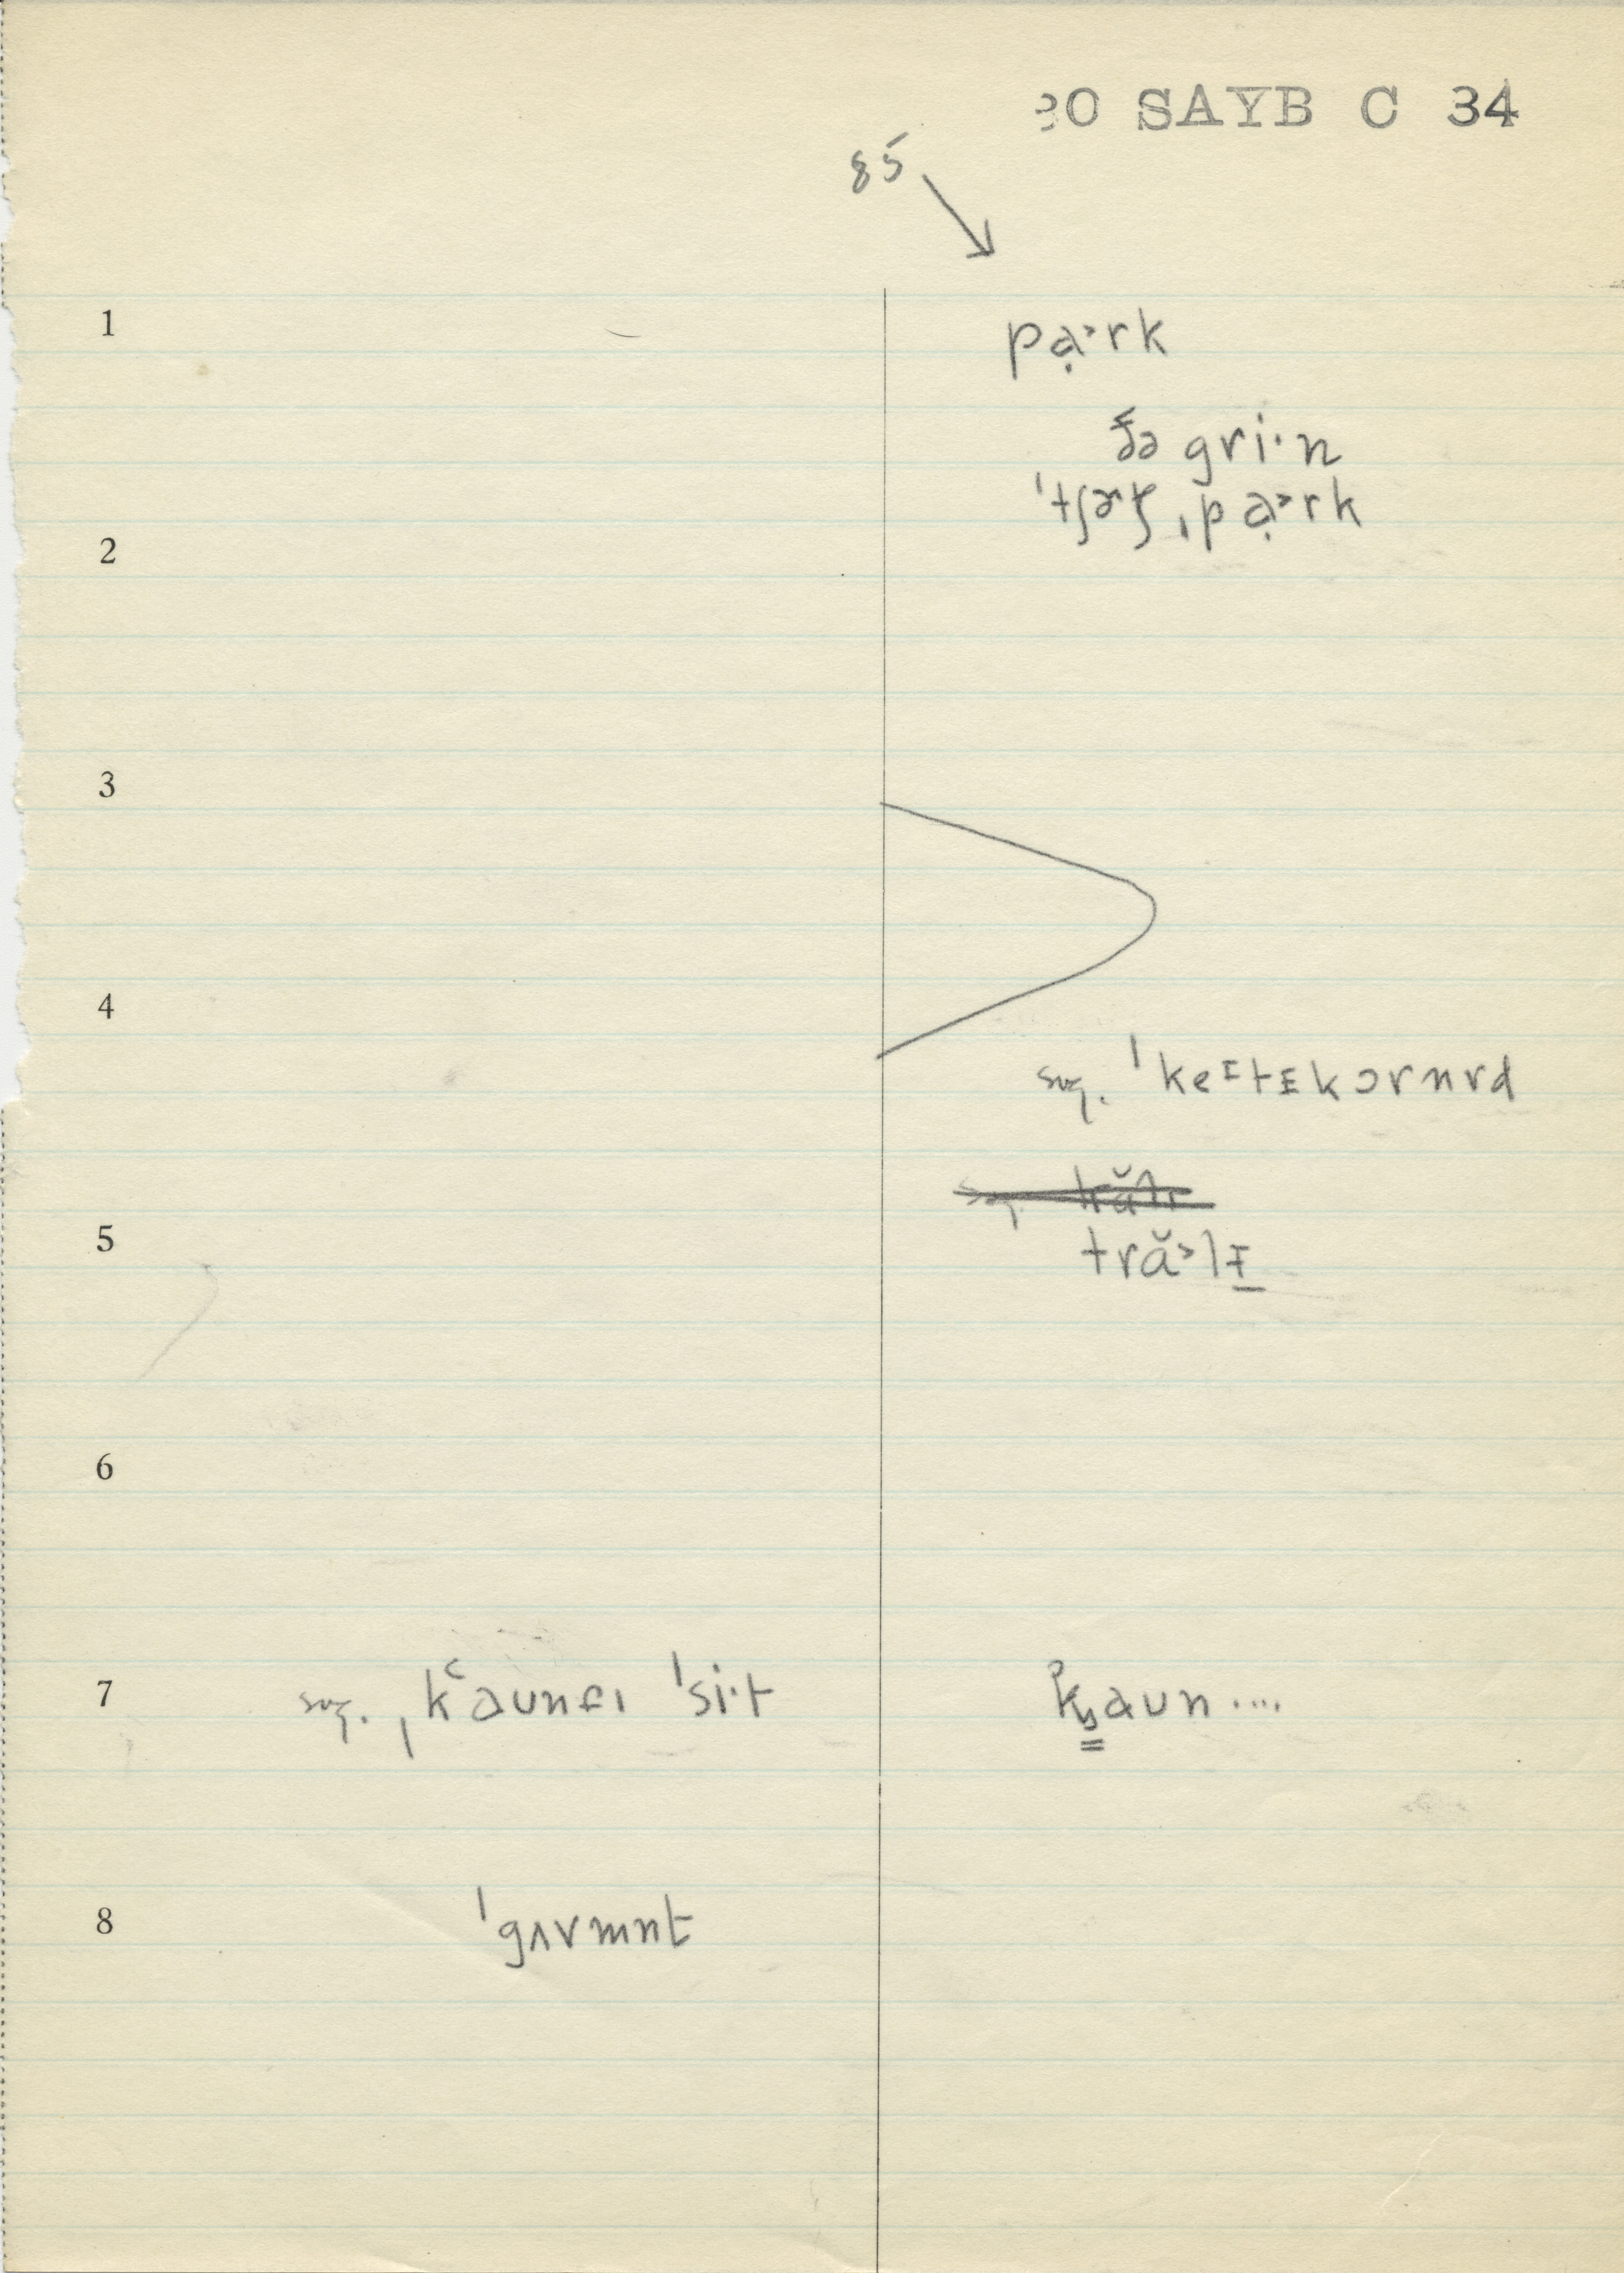 30 SAYB C 34
85
1
pạ˃rk
ðə gri·n
2
ˈtʃɚtʃ ˌpạ˃rk
3
4
sug. ˈkeɪtɪkɔrnrd
5
tră˃lɪ
6
7 sug. ˌkʽaunɛɪ ˈsi·t
kaun....
8 ˈgʌvmnt